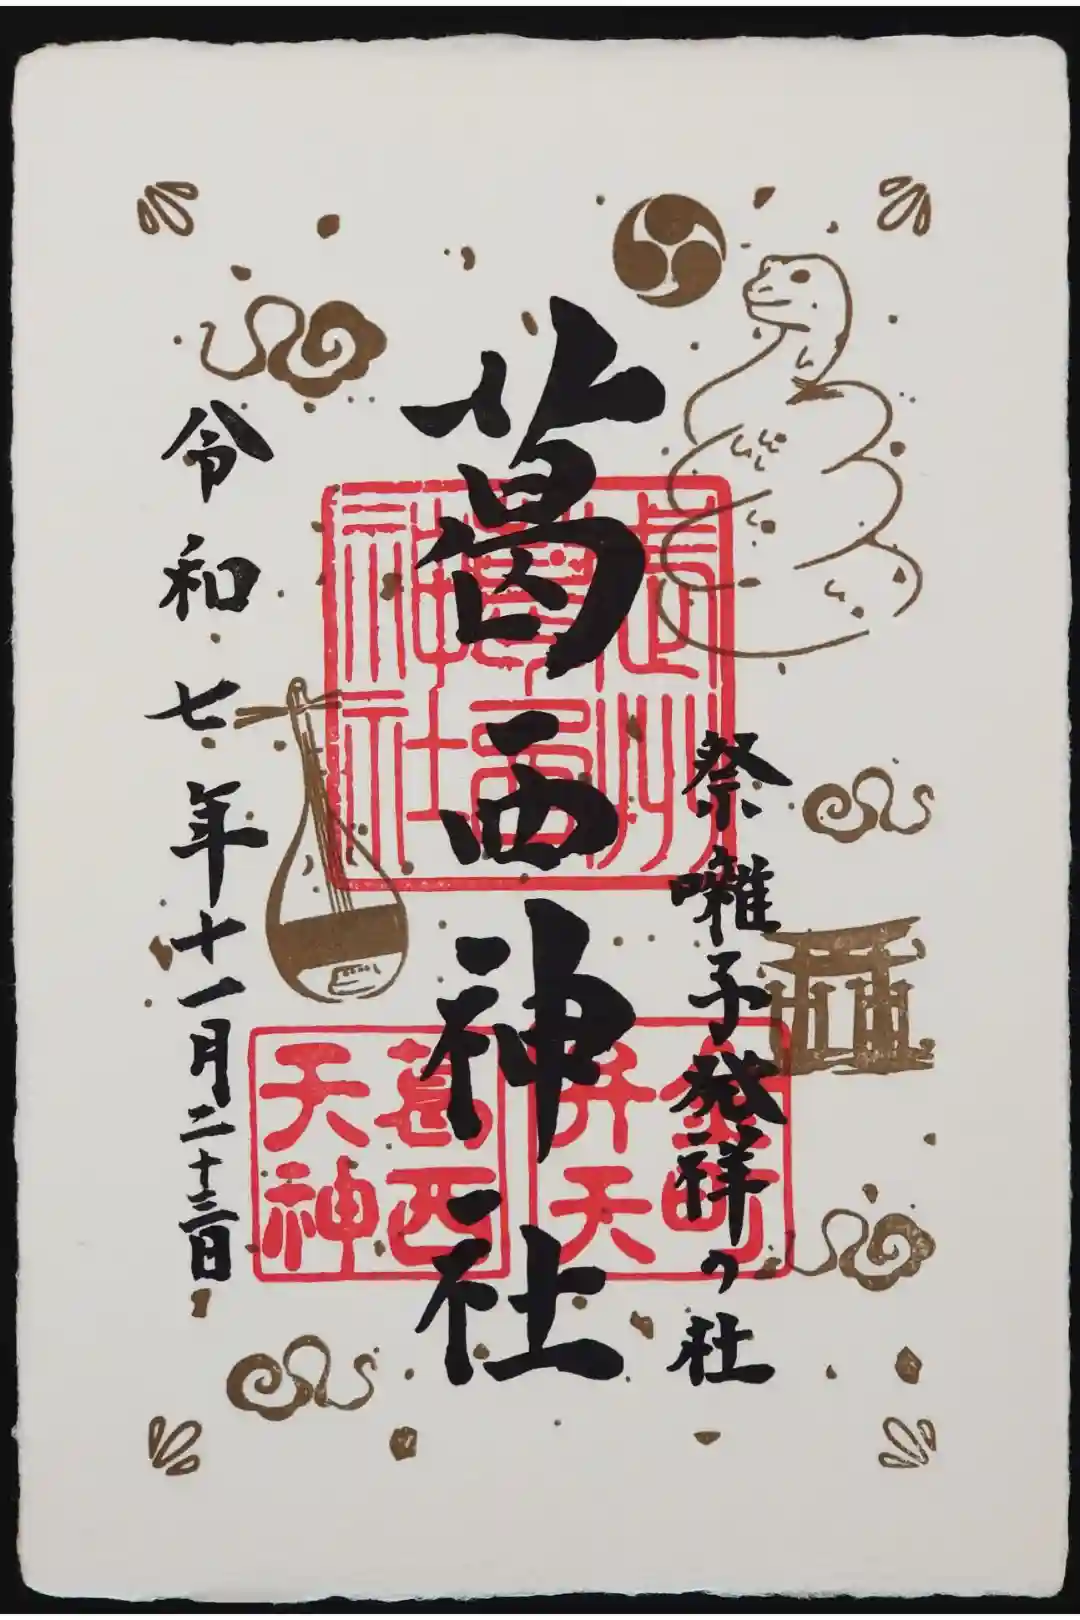 祭囃子発祥の社
葛西神社
令和七年十一月二十三日
武州
葛西
神社
金町
弁天
葛西
天神